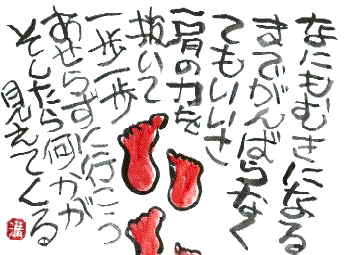 なにもむきになる
までがんばらなく
てもいいさ
肩の力を
抜いて
一歩一歩
あせらずに行こう
そしたら何かが
見えてくる